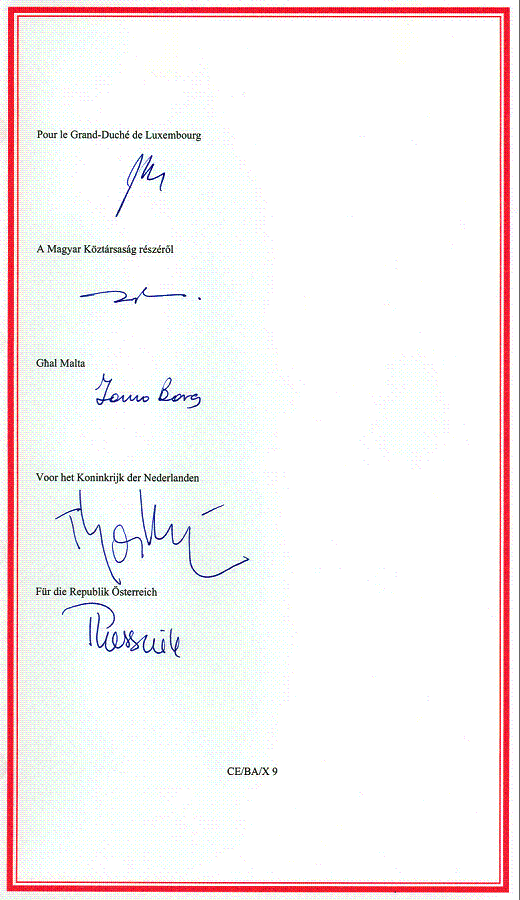 Pour le Grand-Duché de Luxembourg
A Magyar Köztársaság részéről
Għal Malta
Borg
Voor het Koninkrijk der Nederlanden
Für die Republik Österreich
CE/BA/X 9